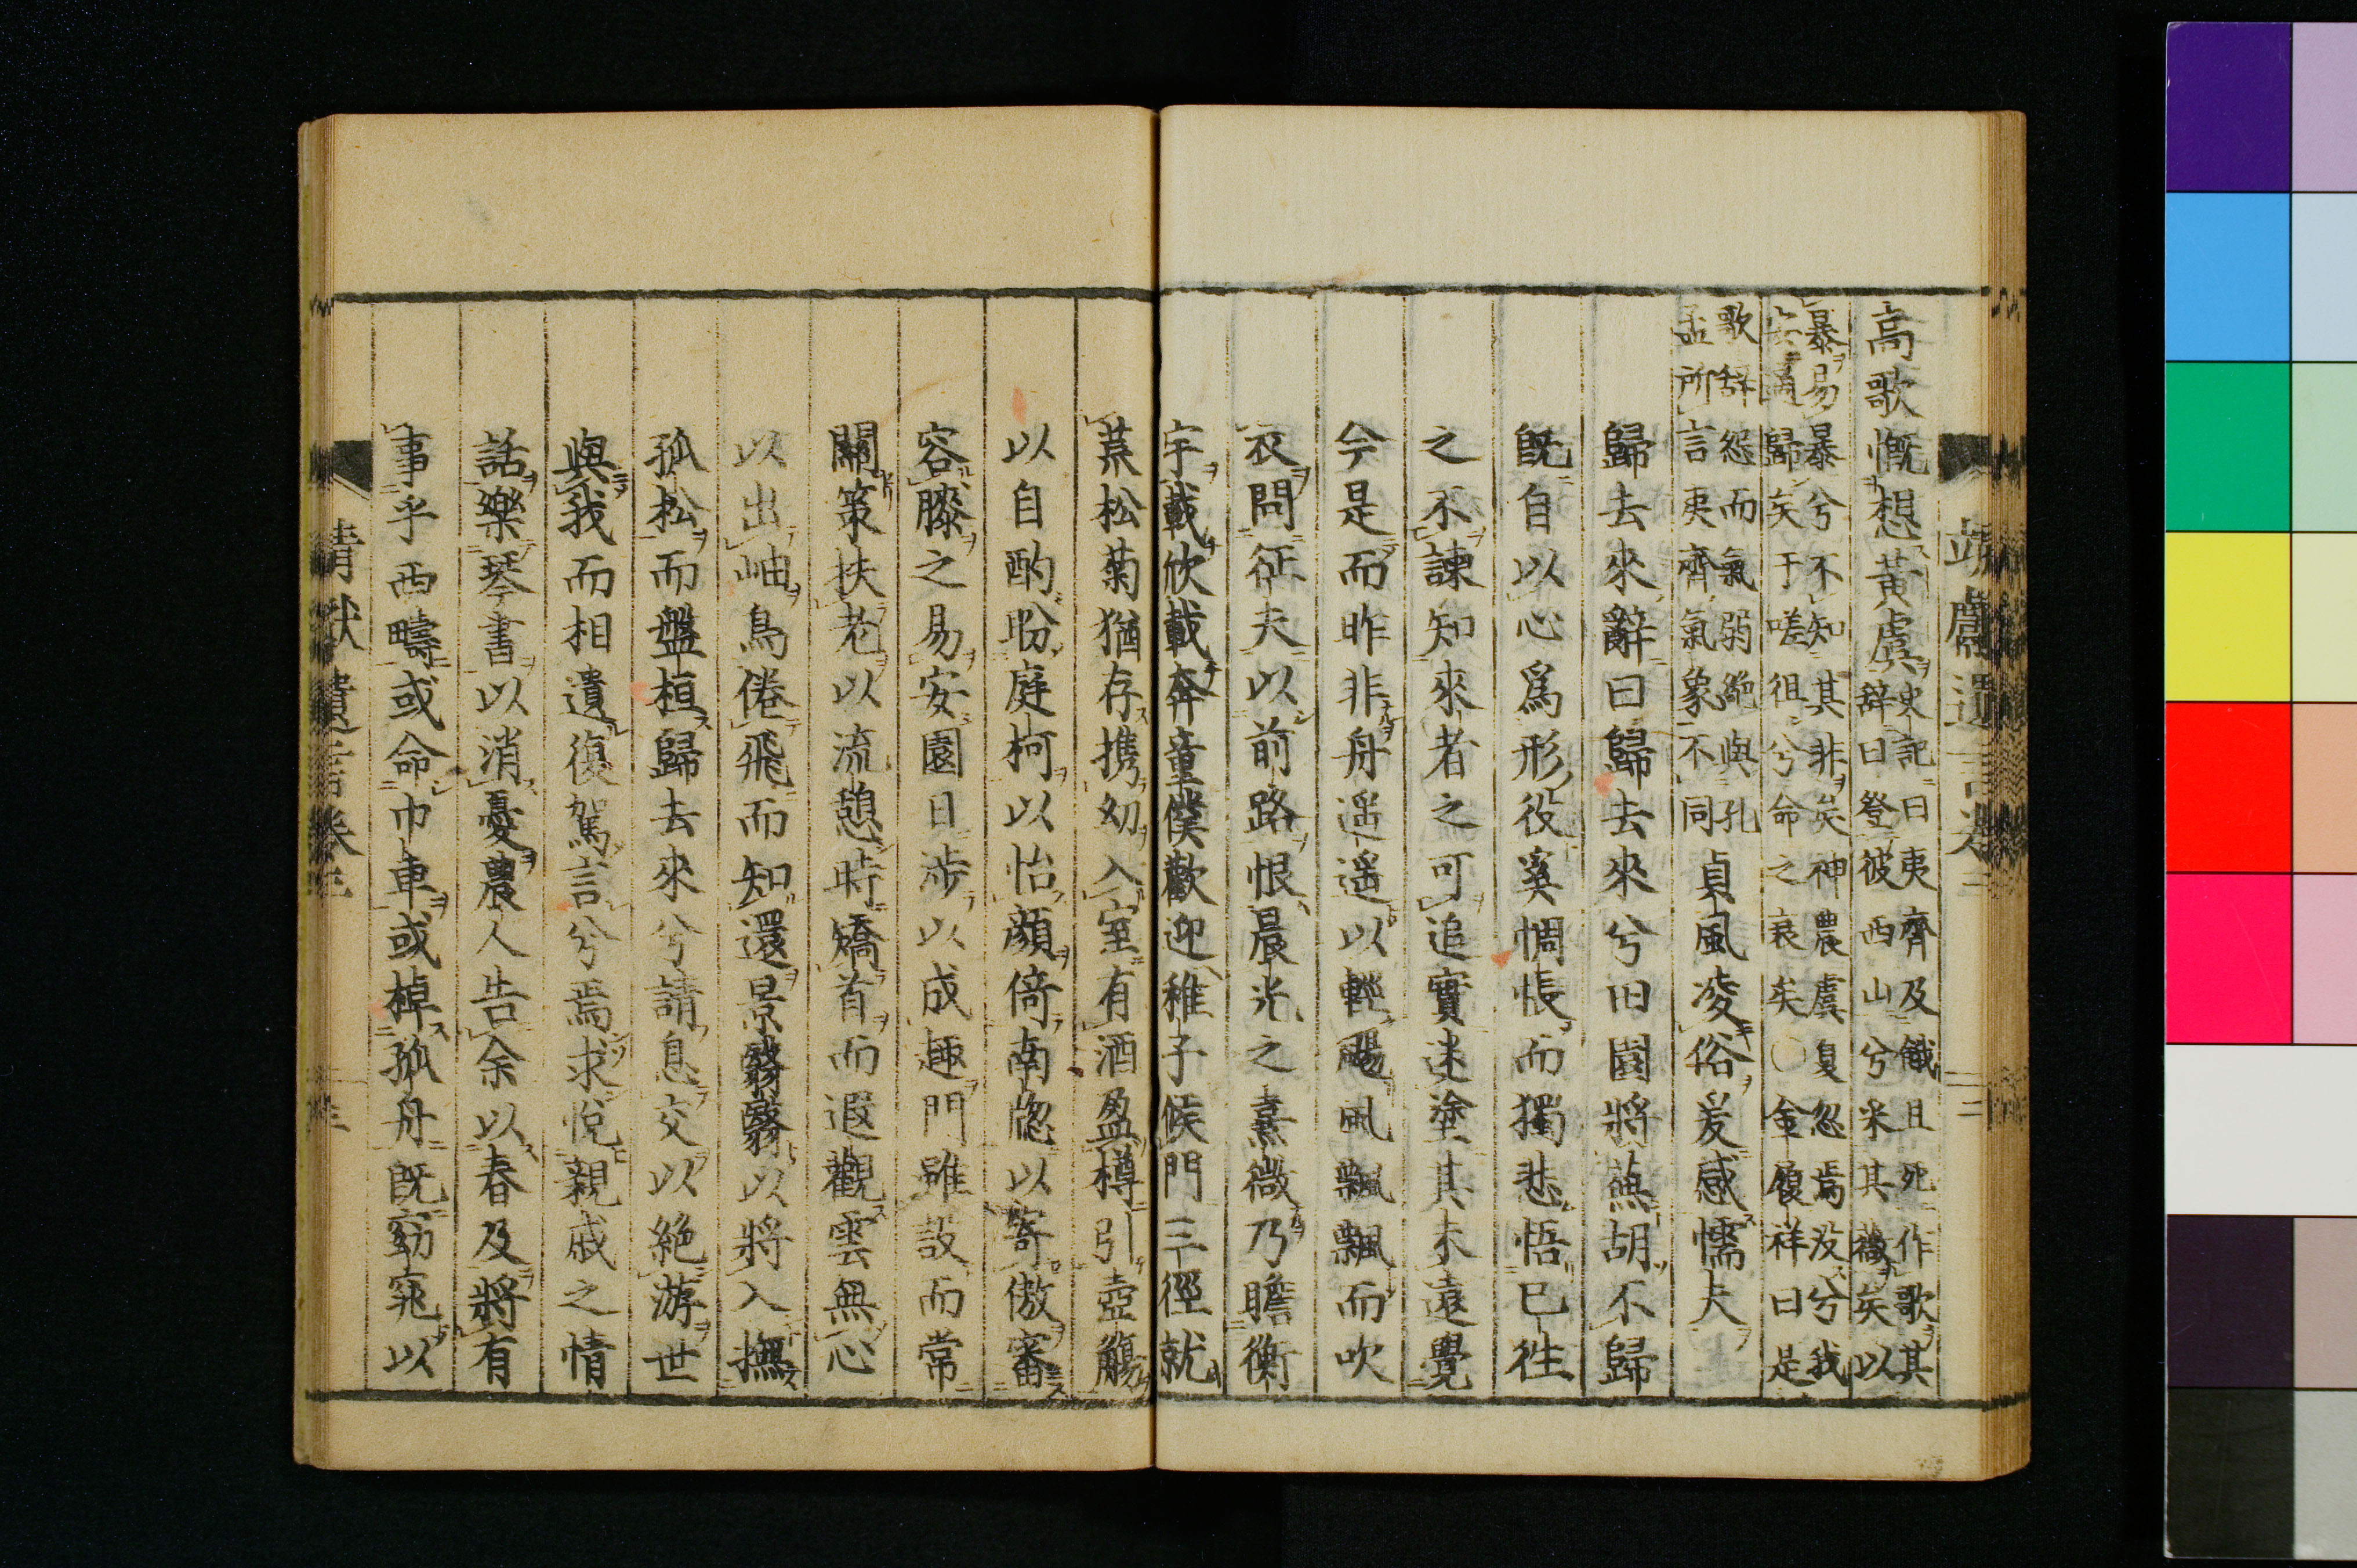 高歌慨想黃虞史記曰夷齊及餓且死作歌其
辞曰登彼西山兮米其薇矣以
暴易暴兮不知其非矣神農虞夏忽焉没兮我
適歸矣于嗟徂兮命之衰矣○金履祥曰是
歌辞怨而氣弱絶與孔
孟所言夷齊氣象不同貞風凌俗爰感懦夫
歸去來辭曰歸去來兮田園將蕪胡不歸
既自以心爲形役奚惆悵而獨悲悟已徃
之不諫知來者之可追實迷塗其未遠覺
今是而昨非舟遥遥以輕颺風飄飄而吹
衣問征夫以前路恨晨光之熹微乃瞻衡
宇載欣載奔童僕歡迎稚子候門三徑就
荒松菊猶存携幼入室有酒盈樽引壺觴
以自酌盼庭柯以怡顔倚南牕以寄傲審
容膝之易安園日渉以成趣門雖設而常
關策扶老以流憩時矯首而遐觀雲無心
以出岫鳥倦飛而知還景翳翳以將入撫
孤松而盤桓歸去來兮請息交以絶游世
與我而相遺復駕言兮焉求悅親戚之情
話樂琴書以消憂農人告余以春及將有
事乎西疇或命巾車或棹孤舟既窈窕以
靖獻遺言卷三